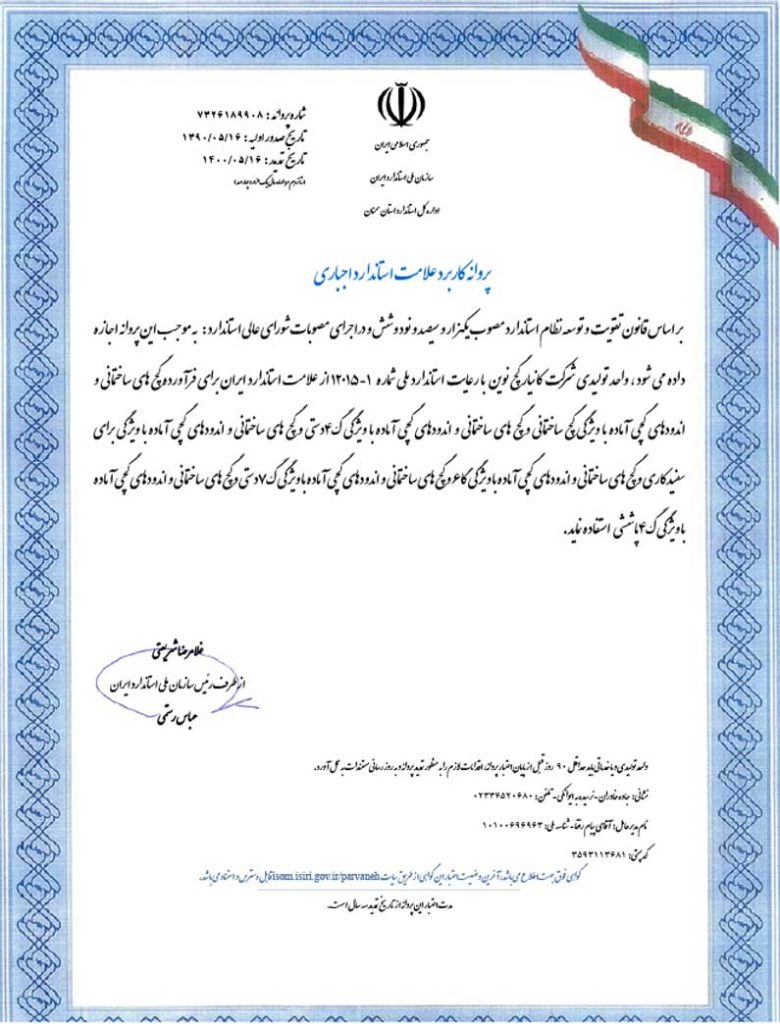 شماره پروانه : ۷۳۲۶۱۸۹۹۰۸
تاریخ صدور اولیه : ۱۳۹۰/۰۵/۱۶
تاریخ تمدید : ۱۴۰۰/۰۵/۱۶
جمهوری اسلامی ایران
سازمان ملی استاندارد ایران
اداره کل استاندارد استان سمنان
پروانه کاربرد علامت استاندارد اجباری
بر اساس قانون تقویت و توسعه نظام استاندارد مصوب یکهزار و سیصد و نود و شش و در اجرای مصوبات شورای عالی استاندارد : به موجب این پروانه اجازه
داده می شود ، واحد تولیدی شرکت کانیار گچ نوین با رعایت استاندارد ملی شماره ۱-۱۲۰۱۵ از علامت استاندارد ایران برای فرآورده گچ های ساختمانی و
اندودهای گچی آماده با ویژگی گچ ساختمانی و گچ های ساختمانی و اندودهای گچی آماده با ویژگی گ۴دستی و گچ های ساختمانی و اندودهای گچی آماده با ویژگی برای
سفیدکاری و گچ های ساختمانی و اندودهای گچی آماده با ویژگی گا۶ و گچ های ساختمانی و اندودهای گچی آماده با ویژگی گ۷دستی و گچ های ساختمانی و اندودهای گچی آماده
با ویژگی گ۴پاششی استفاده نماید.
غلامرضا شریعتی
از طرف رئیس سازمان ملی استاندارد ایران
عباس رستمی
واحد تولیدی و یا خدماتی باید حداقل ۹۰ روز قبل از پایان اعتبار پروانه، اقدامات لازم را به منظور تمدید پروانه و به روز رسانی مستندات به عمل آورد.
نشانی: جاده خاوران - نرسیده به ایوانکی - تلفن: ۰۲۳۳۴۵۲۰۶۸۰
نام مدیرعامل: آقای پیام رفقا - شناسه ملی: ۱۰۱۰۰۶۹۶۹۶۳
کد پستی: ۳۵۹۳۱۱۳۶۸۱
گواهی فوق جهت اطلاع می باشد، آخرین وضعیت اعتبار این گواهی از طریق سایت isom.isiri.gov.ir/parvaneh قابل دسترس و استناد می باشد.
مدت اعتبار این پروانه از تاریخ تمدید سه سال است.